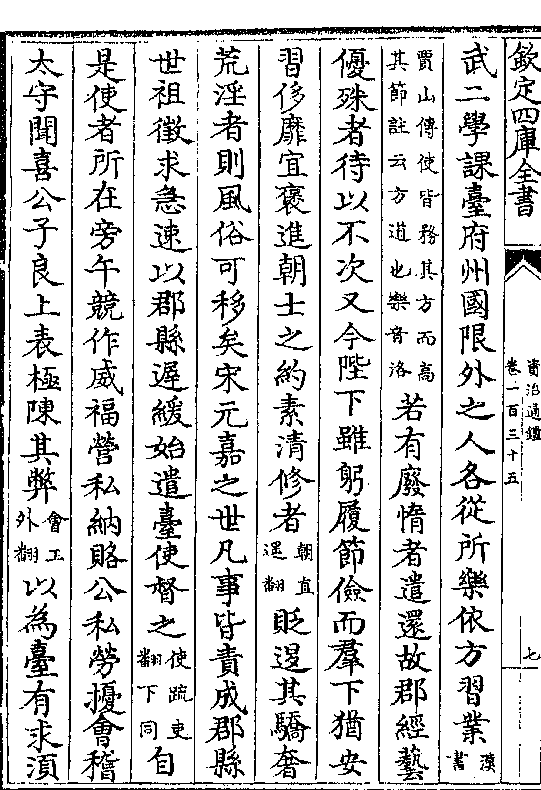 欽定四庫全書
資治通鑑
卷一百三十五
七
武二學課臺府州國限外之人各從所樂依方習業漢書
賈山傳使皆務其方而高其節註云方道也樂音洛若有廢惰者遣還故郡經藝
優殊者待以不次又今陛下雖躬履節儉而羣下猶安
習侈靡宜褒進朝士之約素清修者朝直遥翻貶退其驕奢
荒淫者則風俗可移矣宋元嘉之世凡事皆責成郡縣
世祖徵求急速以郡縣遲緩始遣臺使督之使疏吏翻下同自
是使者所在旁午競作威福營私納賂公私勞擾會稽
太守聞喜公子良上表極陳其弊會工外翻以為臺有求須